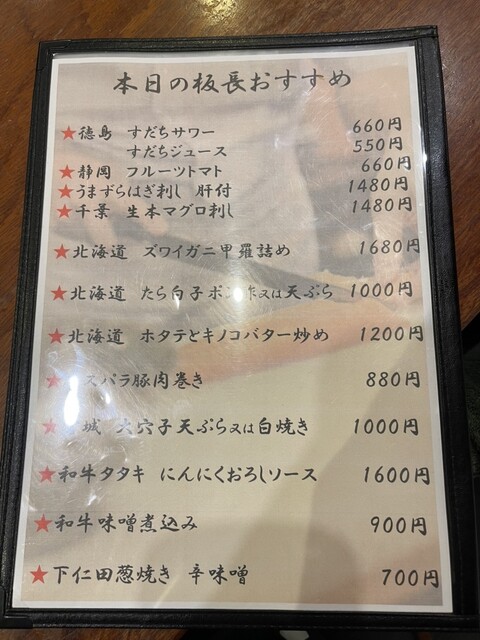 本日の板長おすすめ
★徳島 すだちサワー 660円
すだちジュース 550円
★静岡 フルーツトマト 660円
★うまずらはぎ刺し 肝付 1480円
★千葉 生本マグロ刺し 1480円
★北海道 ズワイガニ甲羅詰め 1680円
★北海道 たら白子ポン酢又は天ぷら 1000円
★北海道 ホタテとキノコバター炒め 1200円
★スパラ豚肉巻き 880円
★城 大穴子天ぷら又は白焼き 1000円
★和牛タタキ にんにくおろしソース 1600円
★和牛味噌煮込み 900円
★下仁田葱焼き 辛味噌 700円